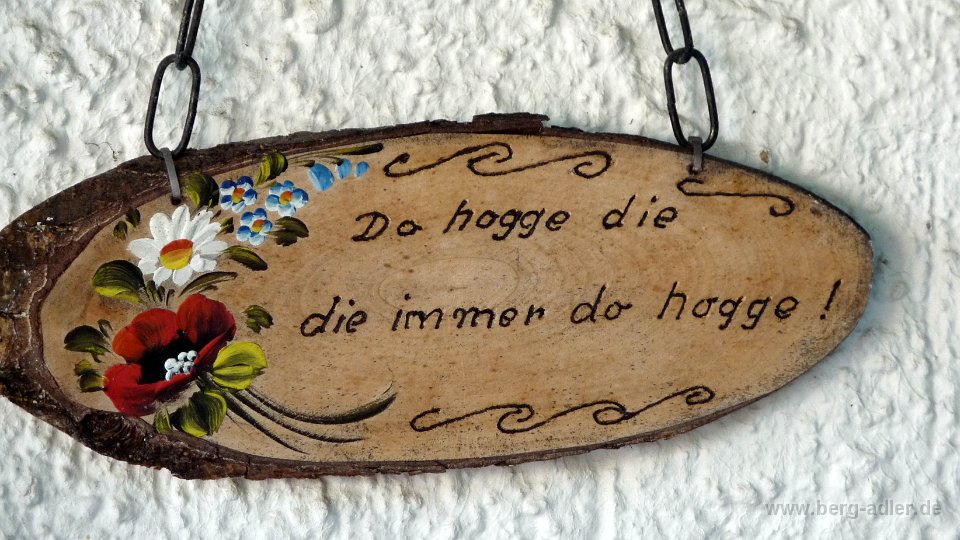 Do hogge die
die immer do hogge !
www.berg-adler.de